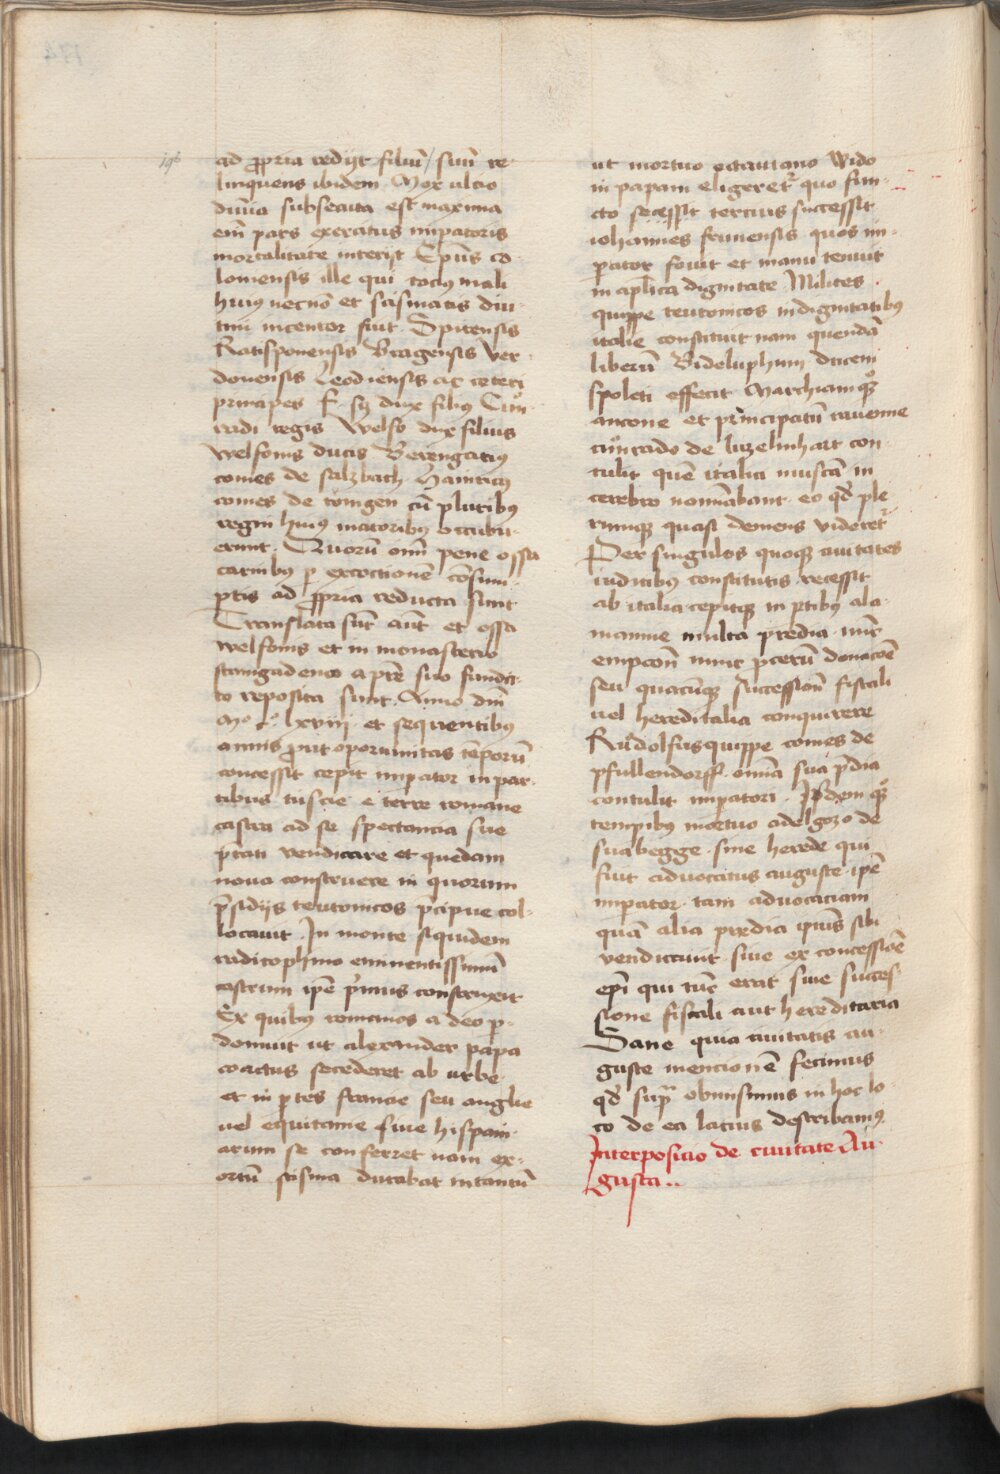 ad ꝓpria redijt filiū / suū re
linquens ibidem Mox ulcio
diuīa subsecuta est maxima
em̄ pars exercitus impatoris
mortalitate interijt Ep̄us co
loniensis ille qui tociꝰ mali
huiꝰ necnō et scismatis diu
tini incentor fuit Spirensis
Ratisponensis Bragensis Ver
donensis Leodiensis ac ceteri
principes F. sij dux filiꝰ Cuͦn
radi regis Welfo dux filius
Welfonis ducis Berengariꝰ
comes de salzbach Hainricꝰ
comes de tuingen cū pluribꝰ
regni huiꝰ maioribꝰ occubu
erunt. Quorū om̄ pene ossa
carnibꝰ ꝑ excoctionē cōsum
ptis ad ꝓpria reducta sunt
Translata sūt aūt et ossa
welfonis et in monasterio
staingadenn a p̄re suo funda
to reposita sunt. Anno dn̄i
Mͦ cͦ lxviij et sequentibus
annis ꝓut oportunitas tēporū
concessit cepit impator in par
tibus tuscie e terre romane
castra ad se spectancia sue
p̄tati vendicare et quedam
noua construere in quorum
p̄sidijs teutonicos p̄cipue col
locauit. In monte siquidem
radicophino eminentissimū
castrum ip̄e p̄mus construxit
Ex quibꝰ romanos a deo ꝑ
domuit ut alexander papa
coactus secederet ab urbe
et in ꝑtes francie seu anglie
uel equitanie siue hispani
arum se conferret nam ex
ortū scisma durabat in tantū
ut mortuo octauiano Wido
in papam eligeretᷣ quo fun
cto secessit tercius successit
iohannes strumensis quos im
ꝑator fouit et manu tenuit
in aplica dignitate Milites
quippe teutonicos in dignitatibꝰ
italie constituit nam quendā
liberū Bideluphum ducem
spoleti effecit Marchiamqꝫ
ancone et principatū rauenne
cuͦnrado de luzelinhart con
tulit quē italici muscā in
cerebro nominabant eo qd̄ ple
rumqꝫ quasi demens videretᷣ
Per singulas quoqꝫ ciuitates
iudicibꝰ constitutis recessit
ab italia cepitqꝫ in ꝑtibus ala
mannie multa predia nūc
empcōn nunc ꝓcerū donacōe
seu quacūqꝫ successiom fiscali
uel hereditalia conquirere
Ruͦdolfus quippe comes de
pfullendorff omia sua p̄dia
contulit impatori. Jisdem qꝫ
tempibꝰ mortuo adelgozo de
suabegge sine herede qui
fuit aduocatus auguste ip̄e
imperator tam aduocaciam
quā alia predia ipius sibi
vendicauit siue ex concessiōe
ep̄i qui tūc erat siue succes
sione fiscali aut hereditaria
Sane quia ciuitatis au
guste mencionē fecimus
qd̄ supͣ obmisimus in hoc lo
co de ea latius describamꝰ
Interposicio de ciuitate Au
gusta..